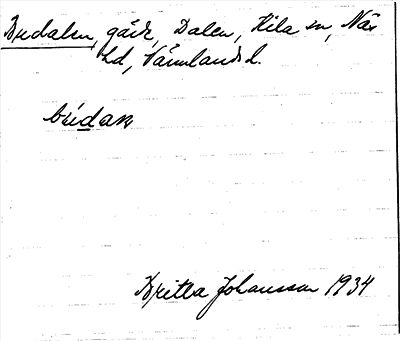 Bredalen, gård, Dalen, Kila sn, Näs
hd, Värmlands l.
Britta Johansson 1934